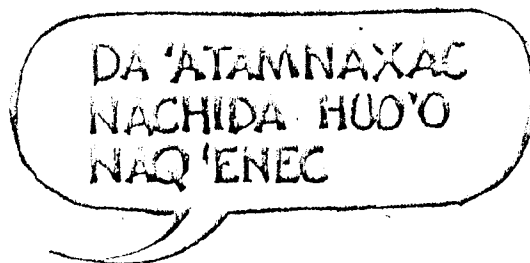 DA 'ATAMNAXAC
NACHIDA HUO'O
NAQ'ENEC